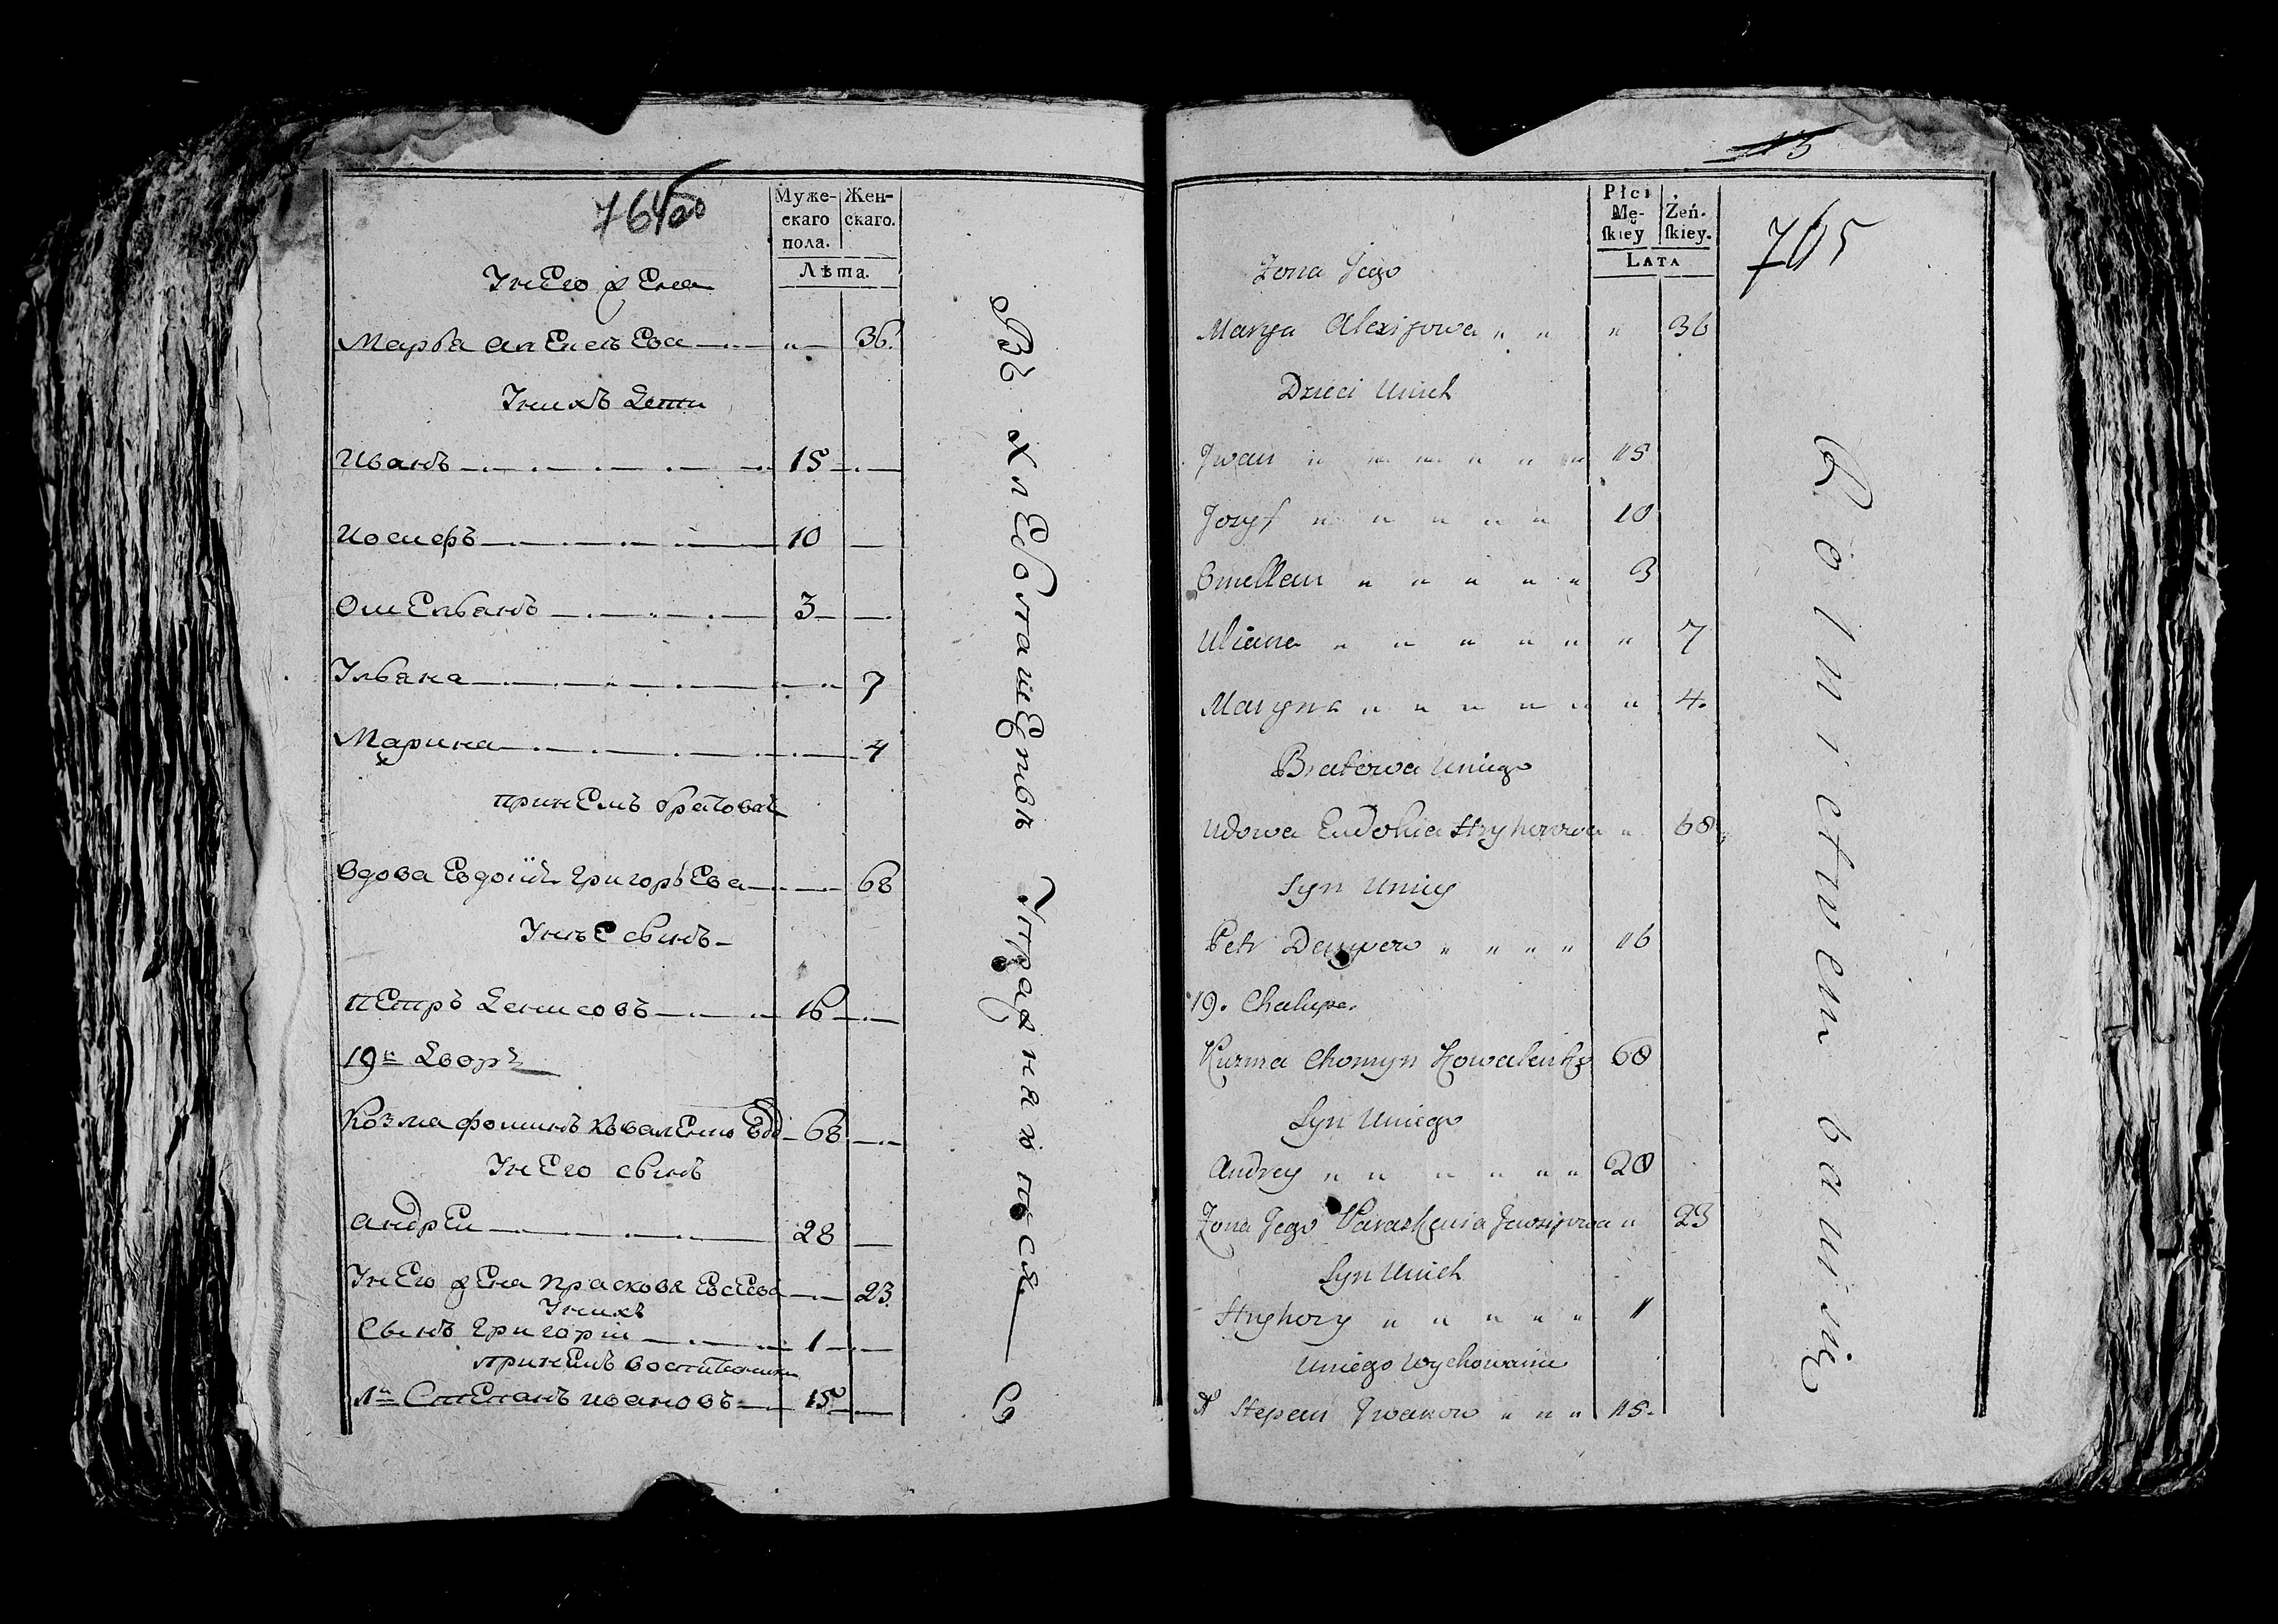 764
Муже-
скаго
пола.
Жен-
скаго.
Лѣта.
Унего жена
Марья алексѣева 36.
Унихъ дети
Иванъ 15
Иосифъ 10
Омельянъ 3
Ульяна 7
Марина 4
принемъ братовая
вдова Евдокия григорьева 68
Унее сынъ
петръ денисовъ 16
19й дворъ
Козма фоминъ коваленко 68
Унего сынъ
андреи 28
Унего жена прасковья евсеева 23.
Унихъ
Сынъ григории 1
принемъ воспитанникъ
Степанъ ивановъ 15
Въ хлебопашестве Упражняютъся
113
Płci
Mę-
skiey
Żeń-
skiey.
LATA
765
Żona Jego
Marya Alexijowa " " " 36
Dzieci Unich
Jwan " " " " " " 15
Jozyf " " " " " 10
Omellan " " " " " 3
Uliana " " " " " " 7
Maryna " " " " " " 4.
Bratowa Uniego
Udowa Eudokia Hryhorowa " 68
Syn Uniey
Petr Denysow " " " " 16
19. Chalupa.
Kuzma Chomyn Kowalenko 68
Syn Uniego
Andrey " " " " " " 28
Żona Jego Paraskewia Jewsijowa " 23
Syn Unich
Hryhory " " " " " 1
Uniego Wychowaniec
Stepan Jwanow " " " 15.
Rolnictwem bawią